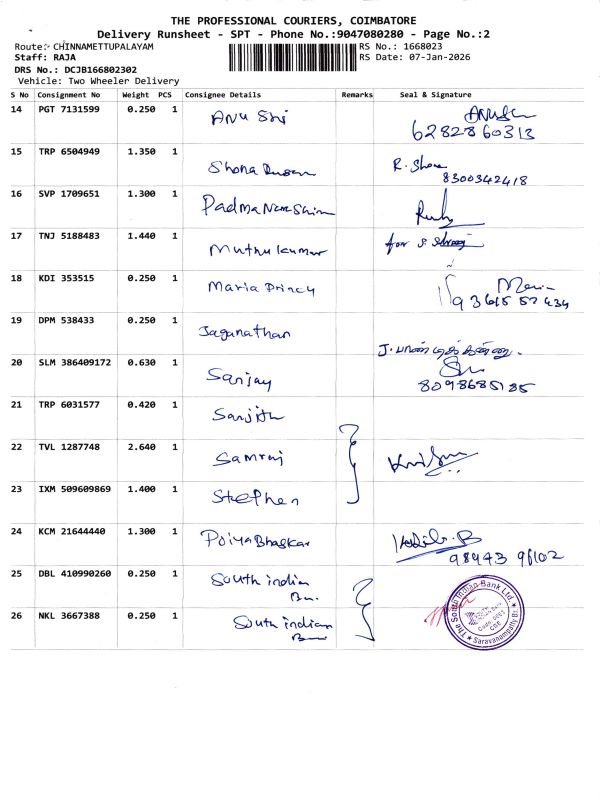 THE PROFESSIONAL COURIERS, COIMBATORE
Delivery Runsheet - SPT - Phone No.:9047080280 - Page No.:2
Route: CHINNAMETTUPALAYAM RS No.: 1668023
Staff: RAJA RS Date: 07-Jan-2026
DRS No.: DCJB166802302
Vehicle: Two Wheeler Delivery
S No Consignment No Weight PCS Consignee Details Remarks Seal & Signature
14 PGT 7131599 0.250 1 Anu Shi
6282860313
15 TRP 6504949 1.350 1 Shona R. Shona
8300342418
16 SVP 1709651 1.300 1 Padma
17 TNJ 5188483 1.440 1 Muthu kumar for S
18 KDI 353515 0.250 1 Maria Princy
19 DPM 538433 0.250 1 Jaganathan
J.
20 SLM 386409172 0.630 1 Sanjay
8098685185
21 TRP 6031577 0.420 1 Sanjith
22 TVL 1287748 2.640 1 Samraj
23 IXM 509609869 1.400 1 Stephen
24 KCM 21644440 1.300 1 Bhaskar
98943 96102
25 DBL 410990260 0.250 1 South indian
26 NKL 3667388 0.250 1 South indian
The South Indian Bank Ltd. ★ Saravanampatty Br. ★